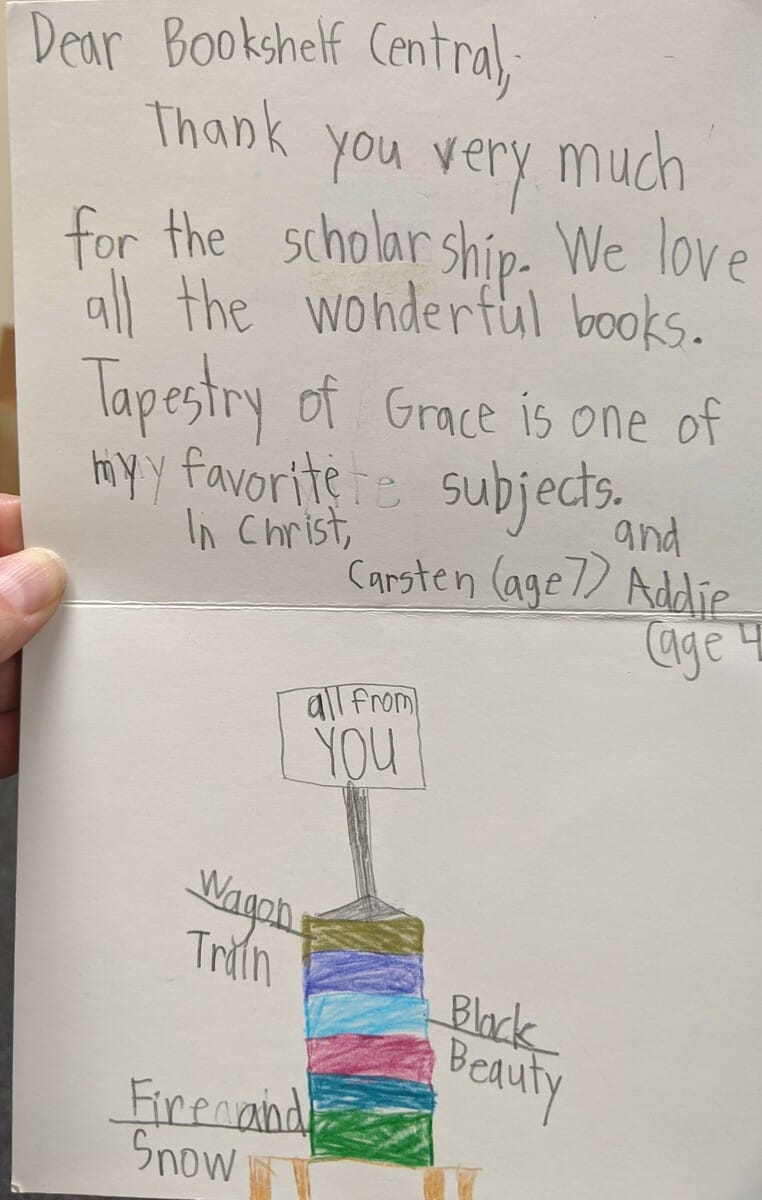 Dear Bookshelf Central,
Thank you very much
for the scholarship. We love
all the wonderful books.
Tapestry of Grace is one of
my favorite subjects.
In Christ,
and
Carsten (age 7) Addie
(age 4
all from
YOU
Wagon
Train
Black
Beauty
Fire and
Snow